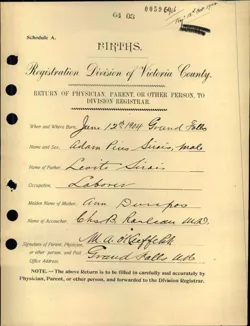 04 05
Schedule A.
BIRTHS.
Registration Division of Victoria County.
RETURN OF PHYSICIAN, PARENT, OR OTHER PERSON, TO
DIVISION REGISTRAR.
When and Where Born, June 12th 1904 Grand Falls
Name and Sex, Adam Pius Sirois, male
Name of Father, Levite Sirois
Occupation, Laborer
Maiden Name of Mother, Ann
Name of Accoucheur, Chas B M.D.
Signature of Parent, Physician,
or other person, and Post
Office Address.
Grand Falls
NOTE. — The above Return is to be filled in carefully and accurately by
Physician, Parent, or other person, and forwarded to the Division Registrar.